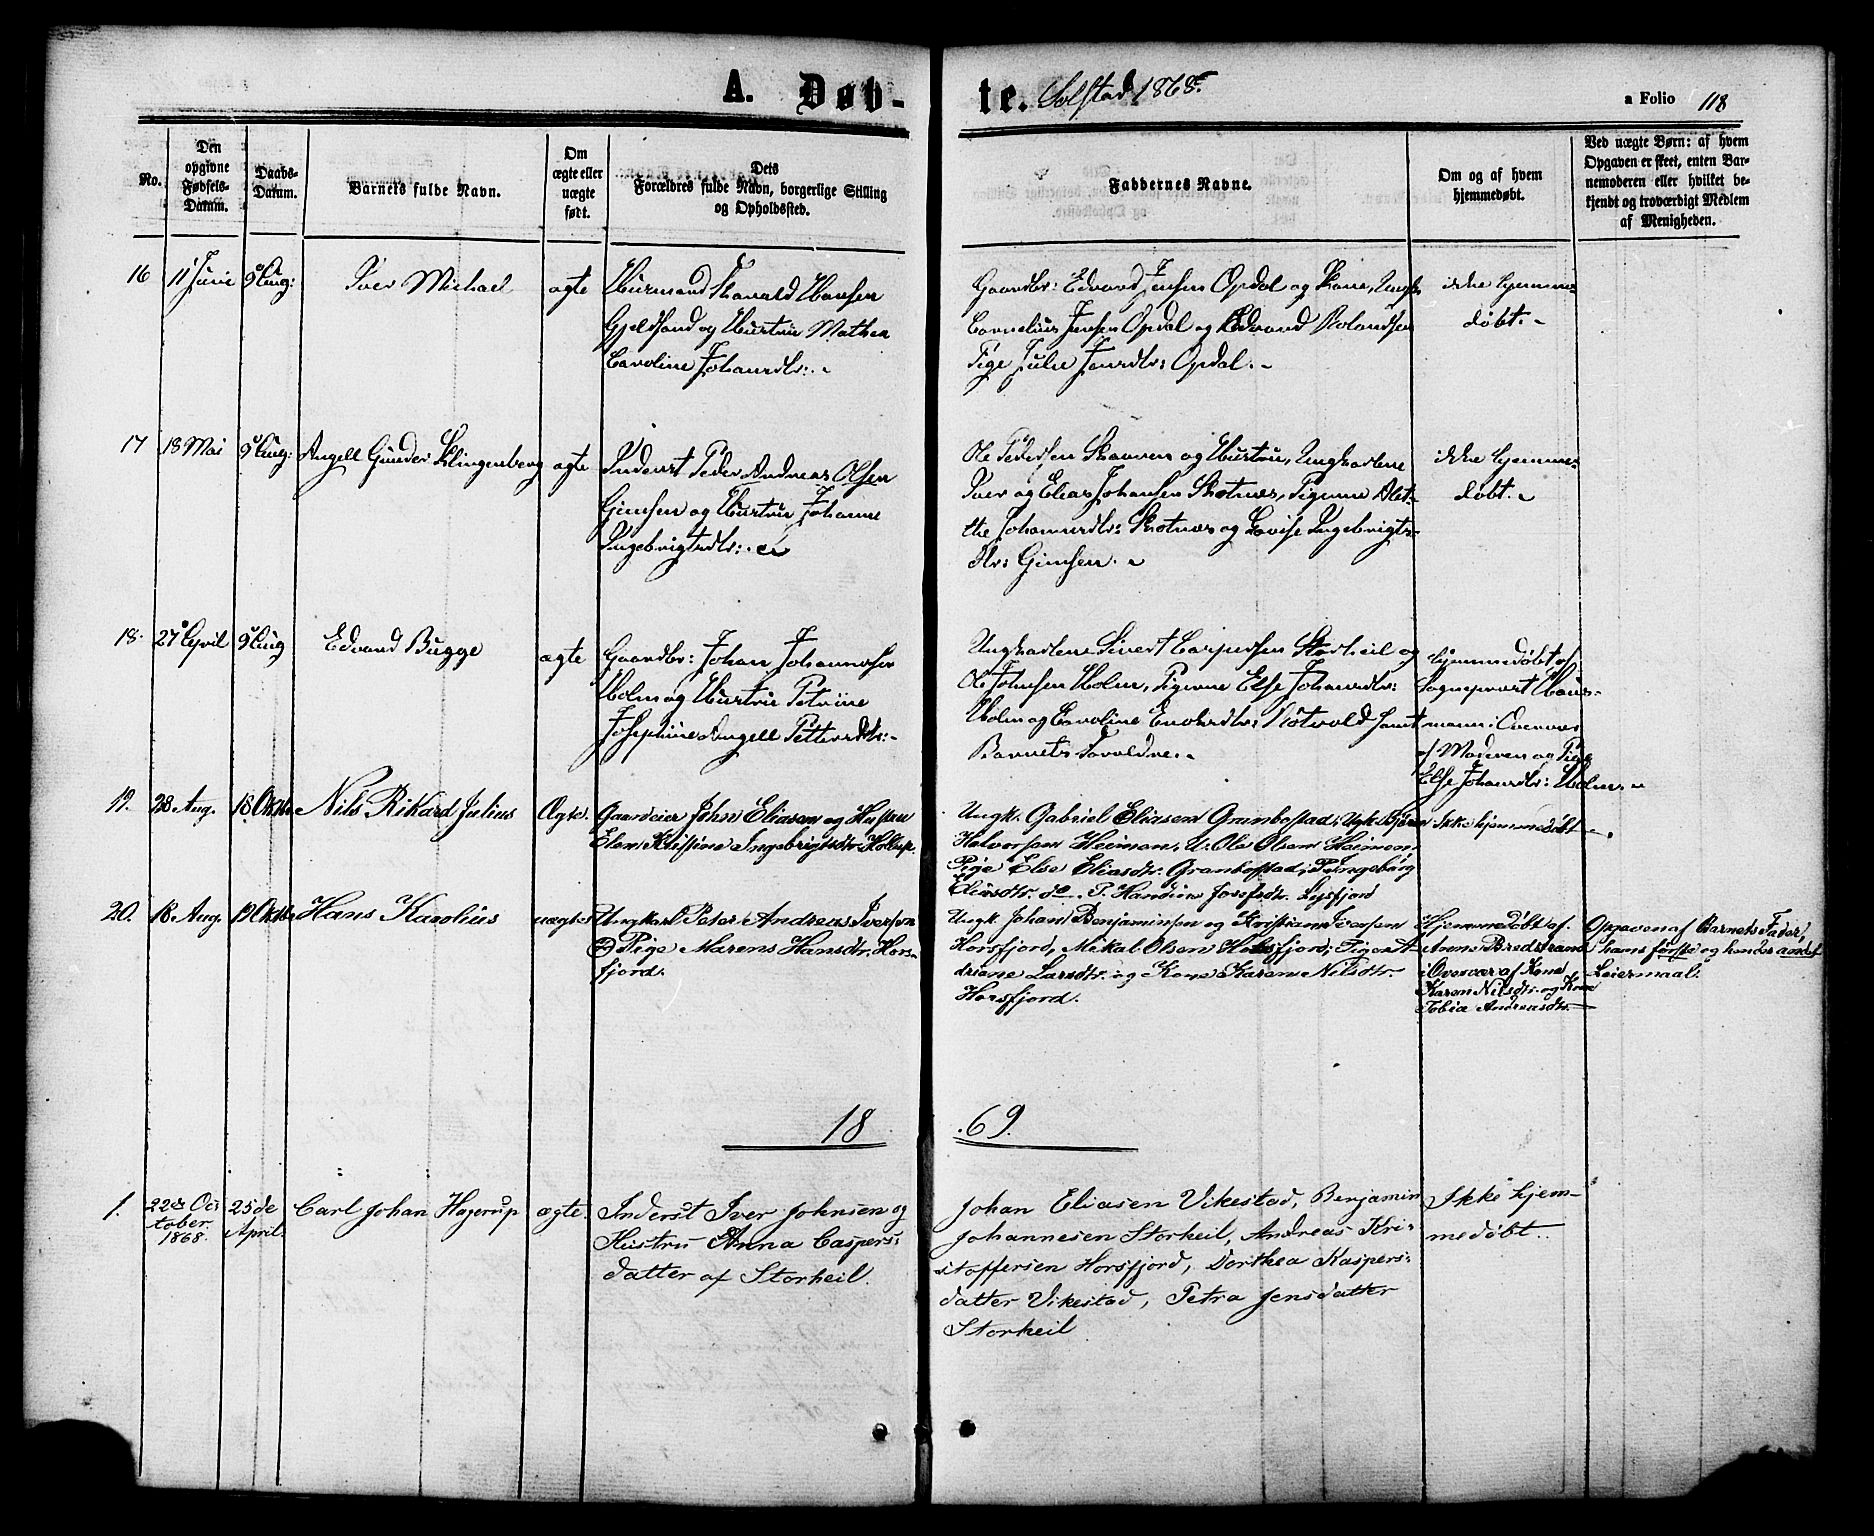 A. Døb-te. Solstad 1868.
a Folio 118
No.
Den opgivne Fødsels-Datum.
Daabs-Datum.
Barnets fulde Navn.
Om ægte eller uægte født.
Dets Forældres fulde Navn, borgerlige Stilling og Opholdssted.
Faddernes Navne.
Om og af hvem hjemmedøbt.
Ved uægte Børn: af hvem Opgaven er skeet, enten Barnemoderen eller hvilket bekjendt og troværdigt Medlem af Menigheden.
16
11 Juni
9 Aug:
Iver Michael
ægte
Huusmand Hansen
og Hustru Mathea
Caroline Johansdtr:.
Gaardbr: Edvard Jensen Opdal og Kone, Ungk.
Cornelius Jensen Opdal og Edvard Rolandsen
Pige Julie Jensdtr: Opdal.
ikke hjemme-
døbt.
17
18 Mai
9 Aug:
Angell Günder Klingenberg
ægte
Inderst Peder Andreas Olsen
Gimsen og Hustru Johanne
Ingebrigtsdtr:.
Ole Pedersen og Hustru, Ungkarlene
Iver og Elias Johansen Skotnes, Pigerne Alet-
the Johannesdtr: Skotnes og Lovise Ingebrigts-
dtr: Gimsen.
ikke hjemme-
døbt.
18.
27 April
9 Aug
Edvard Bugge
ægte
Gaardbr: Johan Johannesen
Holm og Hustru Petrine
Josephine Angell Pettersdtr:
Ungkarlene Sivert Caspersen Storheil og
Ole Johnsen Holm, Pigerne Else Johansdtr:
Holm og Caroline Enoksdtr: samt
Barnets Forældre.
hjemmedøbt af
Sognepræst Haus-
mann i Overvær
af Moderen og Pige
Else Johansdtr: Holm.
19.
28 Aug.
18 Oktbr
Nils Rikard Julius
Ægte.
Gaardeier John Eliasen og Hustru
Elen Kristine Ingebrigtsdtr.
Ungk. Gabriel Eliasen Granbostad, Ungk.
Halvorsen Heimen, U. Ole Olsen Heimen,
Pige Else Eliasdtr. Granbostad, P. Ingeborg
Eliasdtr. do P. Josefsdtr. Lysfjord
Ikke hjemmedøbt.
20.
18 Aug.
19 Oktbr
Hans Karolius
uægte
Ungkarl Peter Andreas Iversen
Pige Maren Hansdtr. Hors-
fjord.
Ungk. Johan Benjaminsen og Kristian Jensen
Horsfjord, Mikal Olsen Horsfjord, Pigen A-
driane Larsdtr. og Kone Karen Nilsdtr.
Horsfjord.
Hjemmedøbt af
Anne Bredstrand
i Overvær af Kone
Karen Nilsdtr. og Kone
Tobia Andreasdtr.
Opgaven af Barnets Fader,
hans første og hendes andet
Leiermaal.
18 69.
1.
22de Oc-
tober
1868.
25de
April.
Carl Johan Hagerup
ægte.
Inderst Iver Johnsen og
Hustru Anna Caspers-
datter af Storheil.
Johan Eliasen Vikestad, Benjamin
Johannesen Storheil, Andreas Kri-
stoffersen Horsfjord, Dorthea Kaspers-
datter Vikestad, Petra Jensdatter
Storheil.
Ikke hjem-
medøbt.